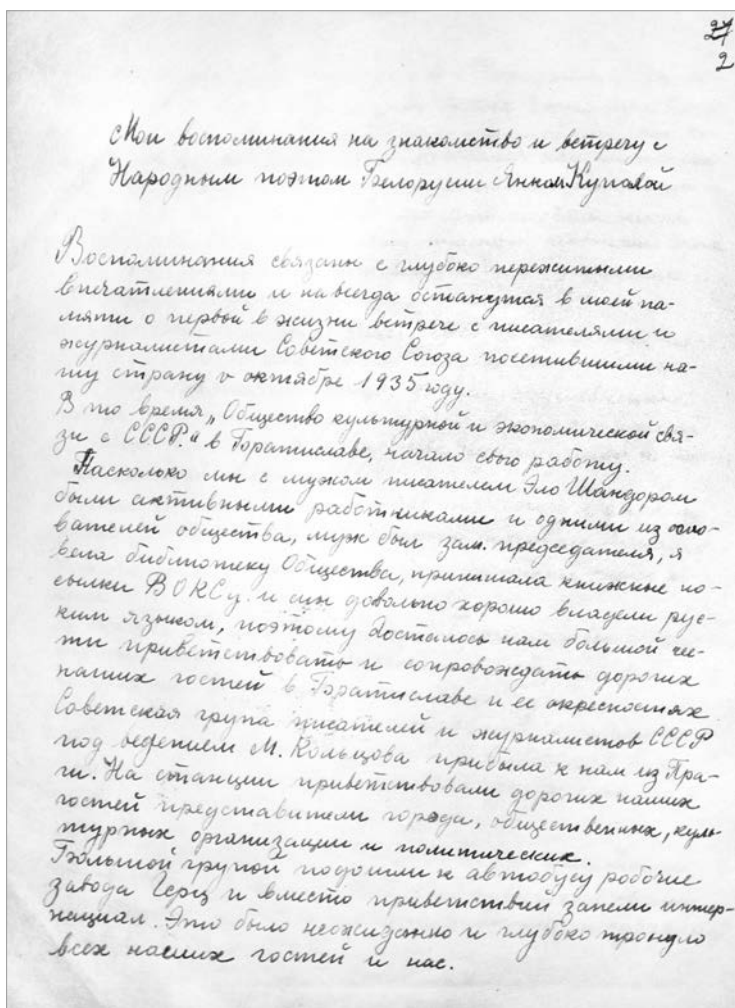 27
2
Мои воспоминания на знакомство и встречу с
Народным поэтом Белорусии Янком Купалой
Воспоминания связаны с глубоко пережитыми
впечатлениями и навсегда останутся в моей па-
мяти о первой в жизни встрече с писателями и
журналистами Советского Союза посетившими на-
шу страну в октябре 1935 году.
В то время „Общество культурной и экономической свя-
зи с СССР." в Братиславе, начало свою работу.
Насколько мы с мужом писателем Эло Шандором
были активными работниками и одними из осно-
вателей общества, муж был зам. председателя, я
вела библиотеку Общества, принимала книжные по-
сылки ВОКСу. и мы довольно хорошо владели рус-
ким языком, поэтому досталось нам большой чес-
ти приветствовать и сопровождать дорогих
наших гостей в Братиславе и ее окресностях.
Советская група писателей и журналистов СССР
под ведением М. Кольцова прибыла к нам из Пра-
ги. На станции приветствовали дорогих наших
гостей представители города, общественных, куль-
турных организации и политических.
Большой групой подошли к автобусу робочие
завода Герц и вместо приветствий запели интер-
нациал. Это было неожиданно и глубоко тронуло
всех наших гостей и нас.